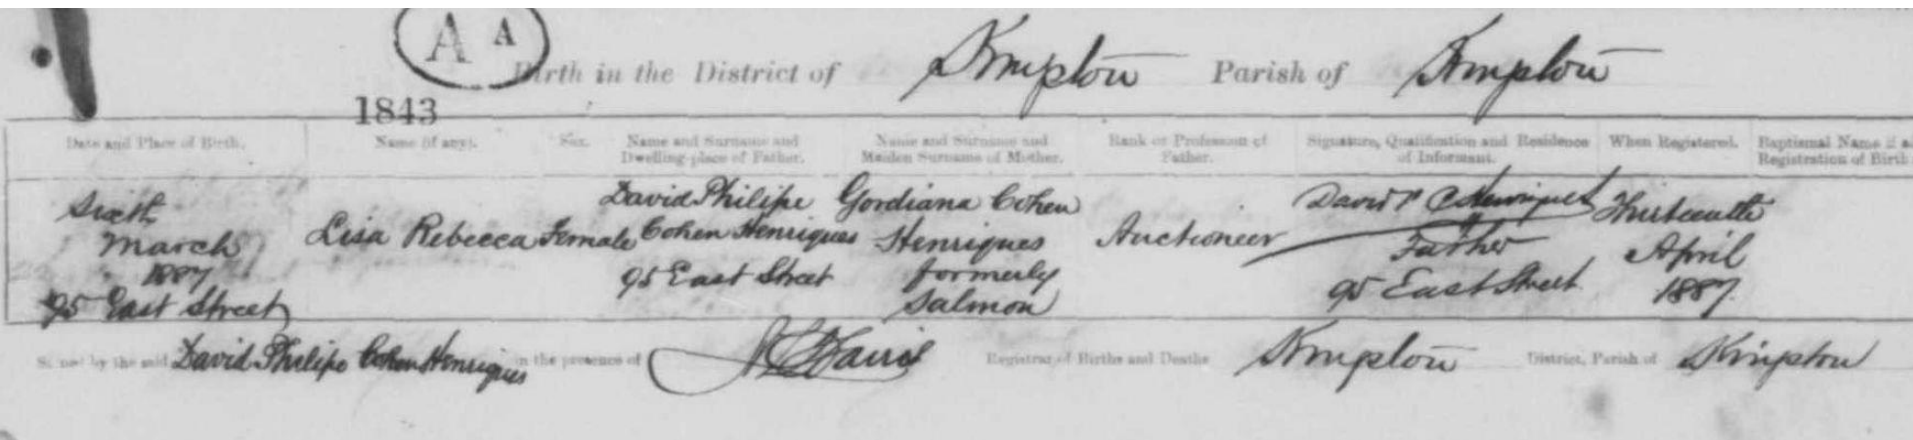 A A
Birth in the District of Kingston Parish of Kingston
1843
Date and Place of Birth. Name (if any). Sex. Name and Surname and Dwelling-place of Father. Name and Surname and Maiden Surname of Mother. Rank or Profession of Father. Signature, Qualification and Residence of Informant. When Registered. Baptismal Name if
Registration of Birth
Sixth March 1887 95 East Street
Lisa Rebecca
Female
David Philipe Cohen Henriques 95 East Street
Gordiana Cohen Henriques formerly Salmon
Auctioneer
David P C Henriques Father 95 East Street
Thirteenth April 1887.
Signed by the said David Philipe Cohen Henriques in the presence of Registrar of Births and Deaths Kingston District, Parish of Kingston